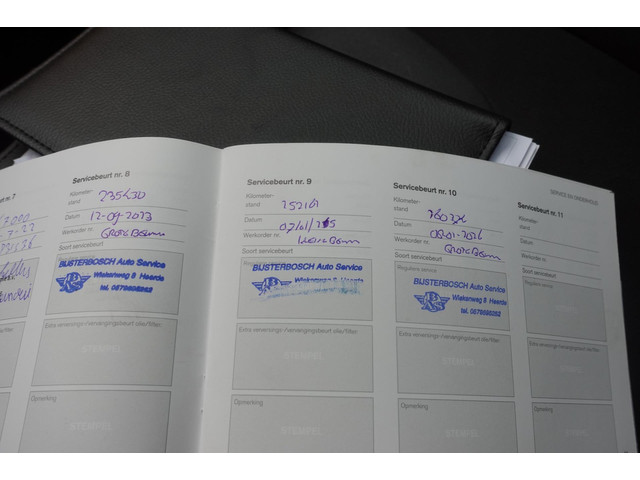 SERVICE EN ONDERHOUD
Servicebeurt nr. 8
Kilometer-
stand 235430
Datum 12-09-2023
Werkorder nr. GROTE BEURT
Soort servicebeurt
BIJSTERBOSCH Auto Service
Wiekenweg 8 Heerde
tel. 0578696262
Extra verversings-/vervangingsbeurt olie/filter
STEMPEL
Opmerking
STEMPEL
Servicebeurt nr. 9
Kilometer-
stand 252161
Datum
Werkorder nr.
Soort servicebeurt
BIJSTERBOSCH Auto Service
Wiekenweg 8 Heerde
Extra verversings-/vervangingsbeurt olie/filter
STEMPEL
Opmerking
STEMPEL
Servicebeurt nr. 10
Kilometer-
stand
Datum 08-01-2026
Werkorder nr. GROTE BEURT
Soort servicebeurt
Reguliere service
BIJSTERBOSCH Auto Service
Wiekenweg 8 Heerde
tel. 0578696262
Extra verversings-/vervangingsbeurt olie/filter
STEMPEL
Opmerking
STEMPEL
Servicebeurt nr. 11
Kilometer-
stand
Datum
Werkorder nr.
Soort servicebeurt
Reguliere service
Extra verversings-/vervangingsbeurt olie/filter
STEMPEL
Opmerking
STEMPEL